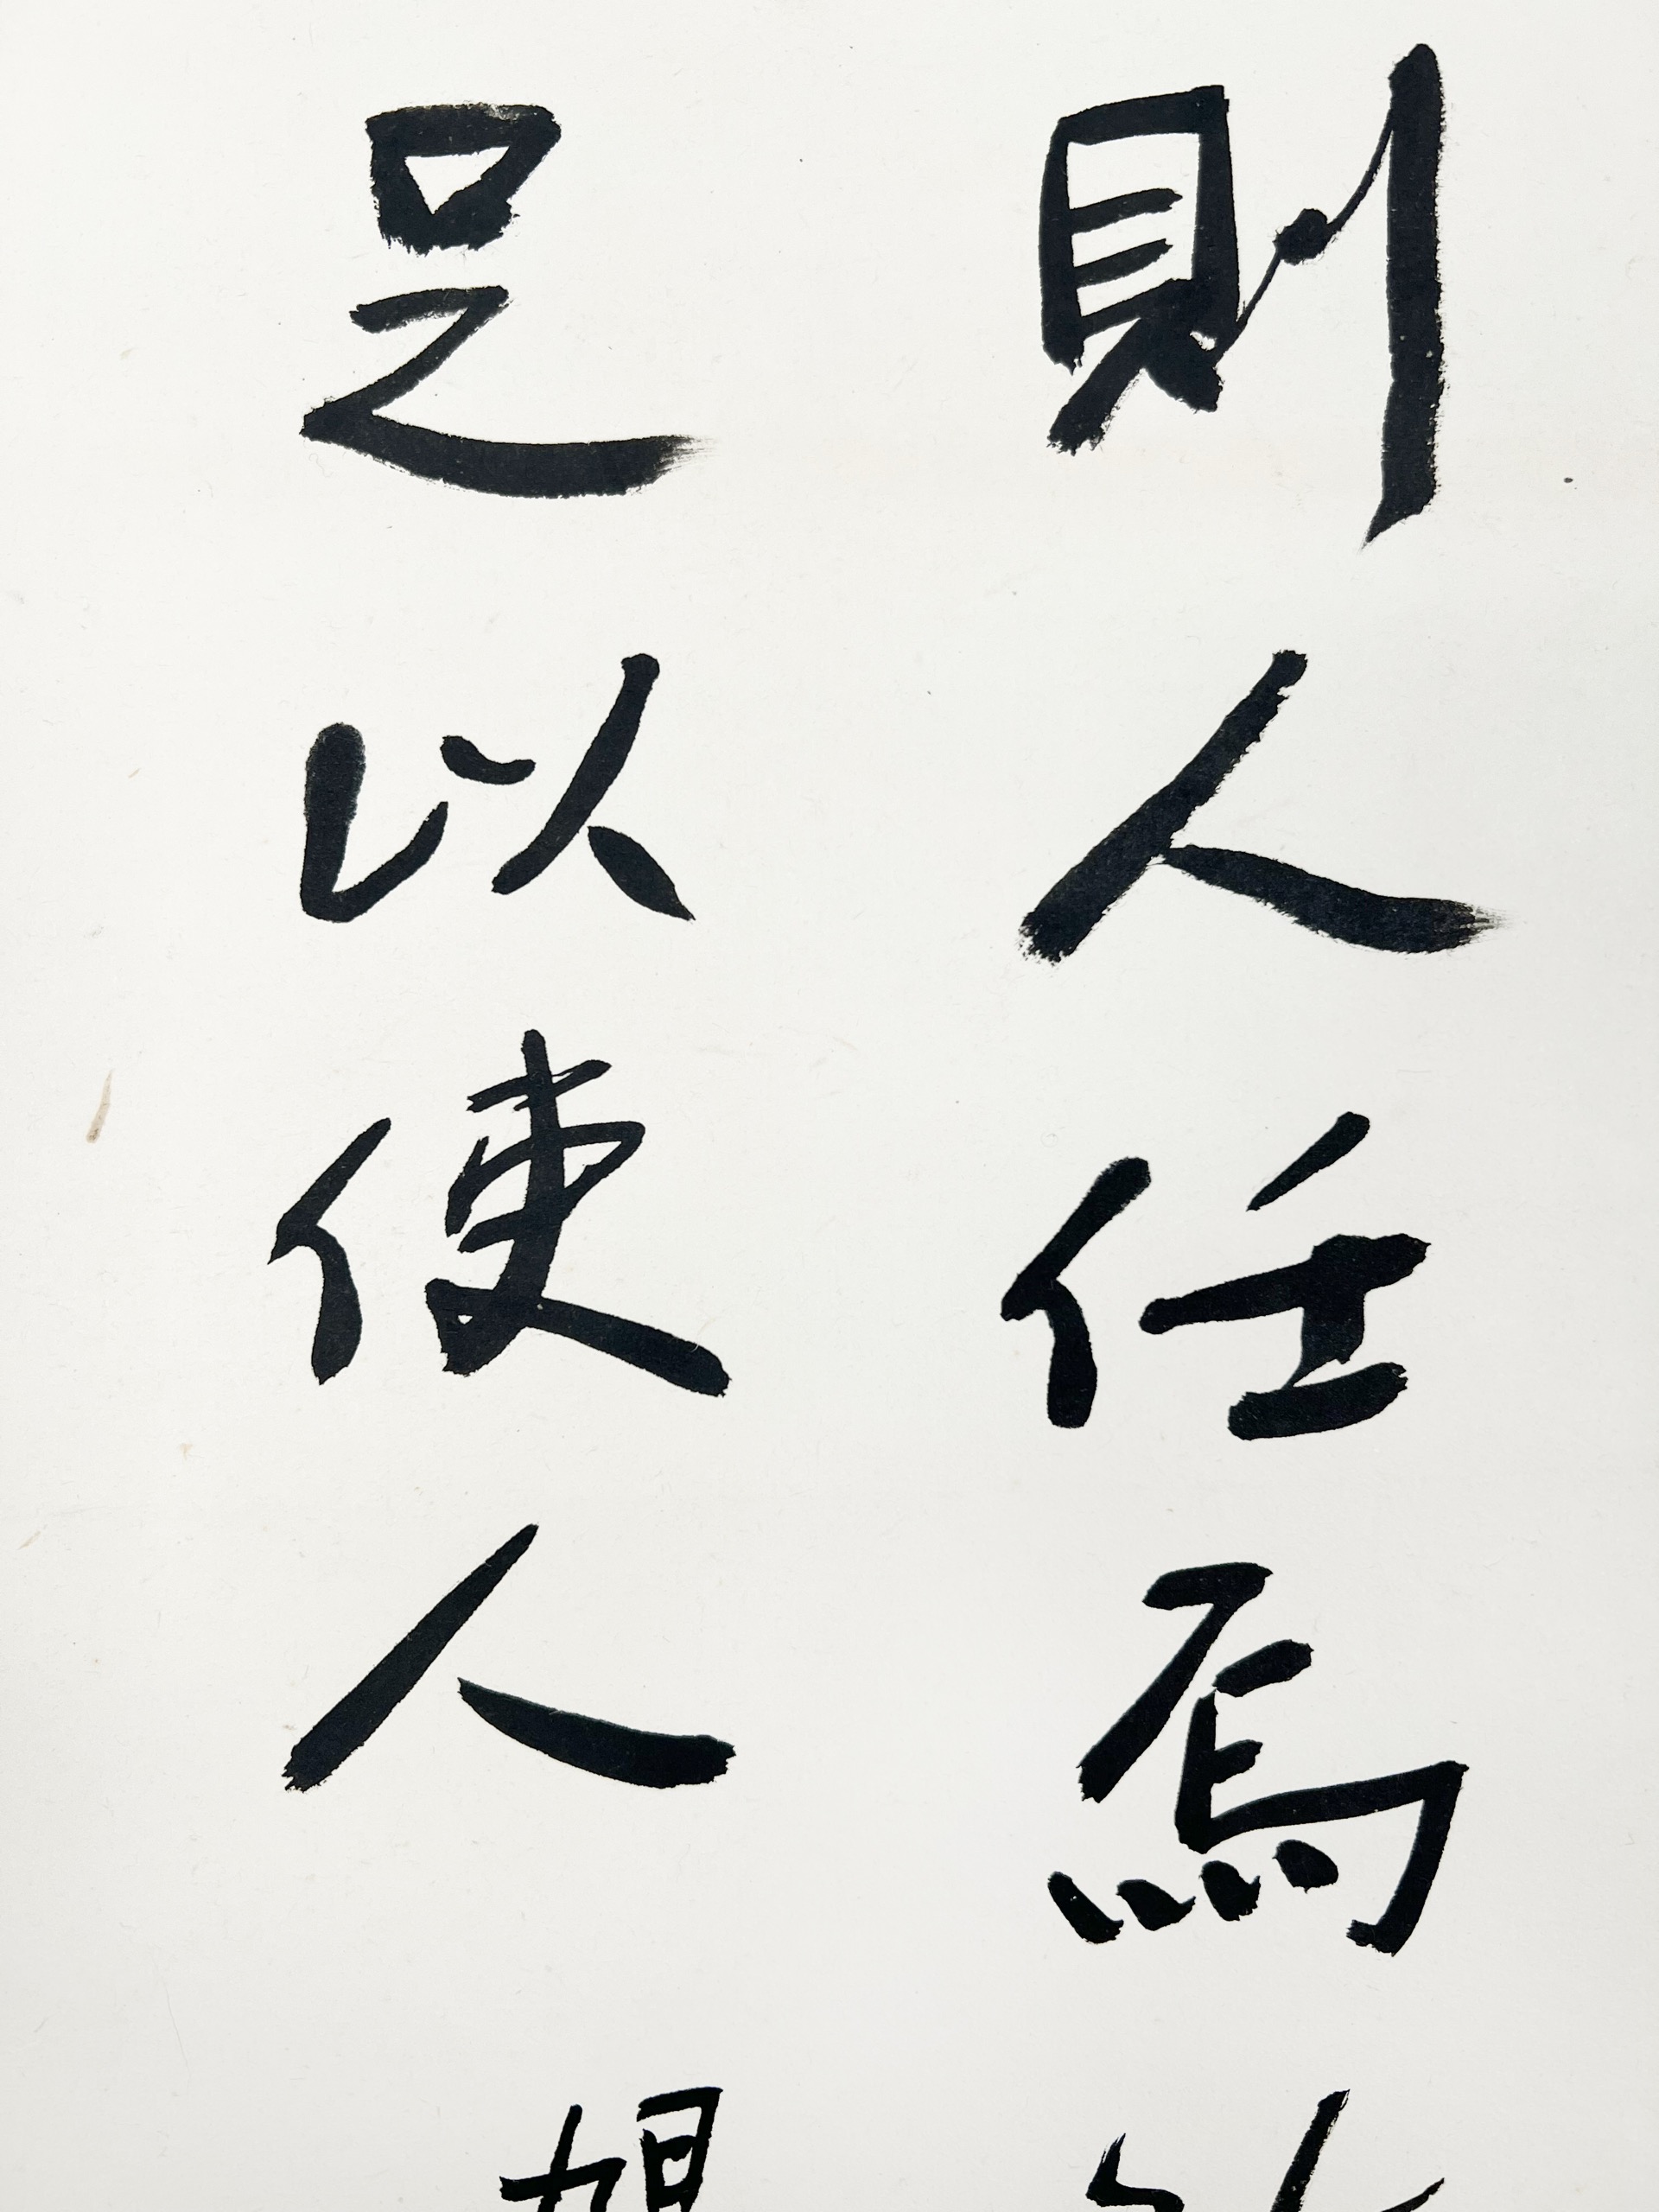 則人任焉
足以使人